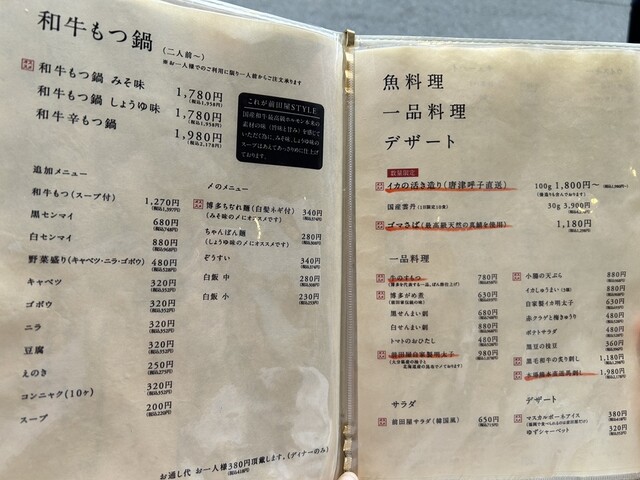 和牛もつ鍋 (二人前〜)
※お一人様でのご利用に限り一人前からご注文承ります
和牛もつ鍋 みそ味 1,780円
(税込1,958円)
和牛もつ鍋 しょうゆ味 1,780円
(税込1,958円)
和牛辛もつ鍋 1,980円
(税込2,178円)
これが前田屋STYLE
国産和牛最高級ホルモン本来の
素材の味(旨味と甘み)を感じて
いただく為に、みそ味、しょうゆ味の
スープはあえてあっさりめに仕上げ
ております。
追加メニュー
和牛もつ(スープ付) 1,270円
(税込1,397円)
黒センマイ 680円
(税込748円)
白センマイ 880円
(税込968円)
野菜盛り(キャベツ・ニラ・ゴボウ) 480円
(税込528円)
キャベツ 320円
(税込352円)
ゴボウ 320円
(税込352円)
ニラ 320円
(税込352円)
豆腐 320円
(税込352円)
えのき 250円
(税込275円)
コンニャク(10ヶ) 320円
(税込352円)
スープ 200円
(税込220円)
〆のメニュー
博多ちぢれ麺(白髪ネギ付) 340円
(みそ味の〆にオススメです)
(税込374円)
ちゃんぽん麺 280円
(しょうゆ味の〆にオススメです)
(税込308円)
ぞうすい 340円
(税込374円)
白飯 中 280円
(税込308円)
白飯 小 230円
(税込253円)
お通し代 お一人様380円頂戴します。(ディナーのみ)
(税込418円)
魚料理
一品料理
デザート
数量限定
イカの活き造り(唐津呼子直送) 100g 1,800円〜
国産雲丹 (1日限定10食) 30g 3,900円
ゴマさば(最高級天然の真鯖を使用) 1,180円
(税込1,298円)
一品料理
牛のすもつ 780円
博多がめ煮 630円
黒せんまい刺 680円
白せんまい刺 880円
トマトのおひたし 480円
前田屋自家製明太子 980円
小腸の天ぷら 880円
イカしゅうまい(3個) 880円
自家製イカ明太子 630円
赤クラゲと梅きゅうり 480円
ポテトサラダ 480円
黒豆の枝豆 360円
黒毛和牛の炙り刺し 1,180円
1,980円
サラダ
前田屋サラダ(韓国風) 650円
(税込715円)
デザート
マスカルポーネアイス 380円
ゆずシャーベット 320円